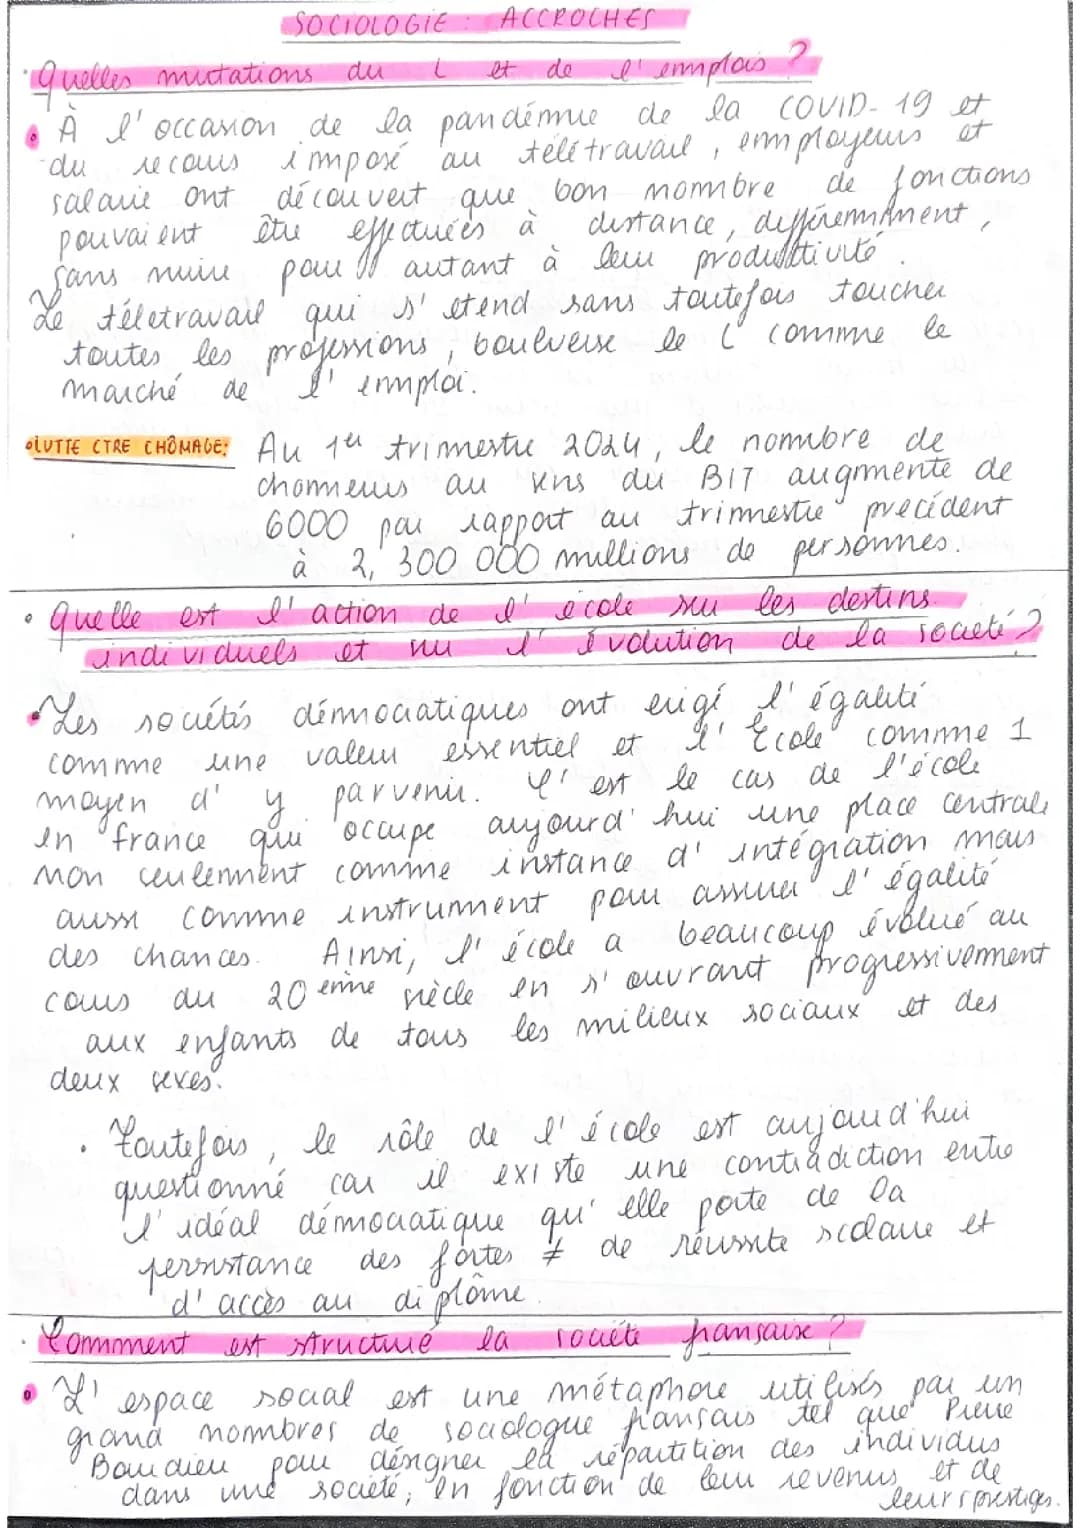 SOCIOLOGIE : ACCROCHES
• Quelles mutations du L et de l'emplois ?
• À l'occasion de la pandémie de la COVID-19 et
du recours imposé au télétravail, employeurs et
salarié ont découvert que bon nombre de fonctions
pouvaient être effectuées à distance, différemment,
sans nuire pour autant à leur productivité.
Le télétravail qui s'étend sans toutefois toucher
toutes les professions, bouleverse le L comme le
marché de l'emploi.
• LUTTE CTRE CHÔMAGE: Au 1er trimestre 2024, le nombre de
chomeurs au sens du BIT augmente de
6000 par rapport au trimestre précédent
à 2, 300 000 millions de personnes.
• Quelle est l'action de l'école sur les destins
individuels et sur l'évolution de la société ?
• Les sociétés démocratiques ont érigé l'égalité
comme une valeur essentiel et l'École comme 1
moyen d'y parvenir. C'est le cas de l'école
en france qui occupe aujourd'hui une place centrale
non seulement comme instance d'intégration mais
aussi comme instrument pour assurer l'égalité
des chances. Ainsi, l'école a beaucoup évolué au
cours du 20ème siècle en s'ouvrant progressivement
aux enfants de tous les milieux sociaux et des
deux sexes.
• Toutefois, le rôle de l'école est aujourd'hui
questionné car il existe une contradiction entre
l'idéal démocratique qu'elle porte de la
persistance des fortes ≠ de réussite scolaire et
d'accès au diplôme.
• Comment est structuré la société française ?
• L'espace social est une métaphore utilisés par un
grand nombres de sociologue français tel que Pierre
Bourdieu pour désigner la répartition des individus
dans une société, en fonction de leur revenus et de
leurs prestiges.